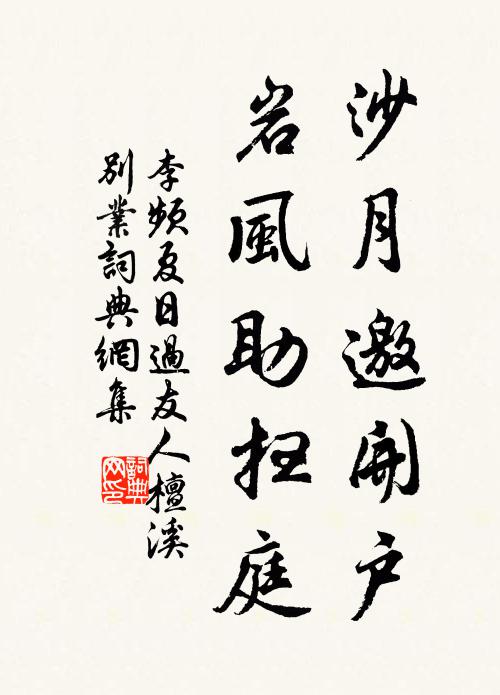 沙月邀開户
岩風助扫庭
李頻夏日過友人檀溪
別業詞典網集
詞典网印